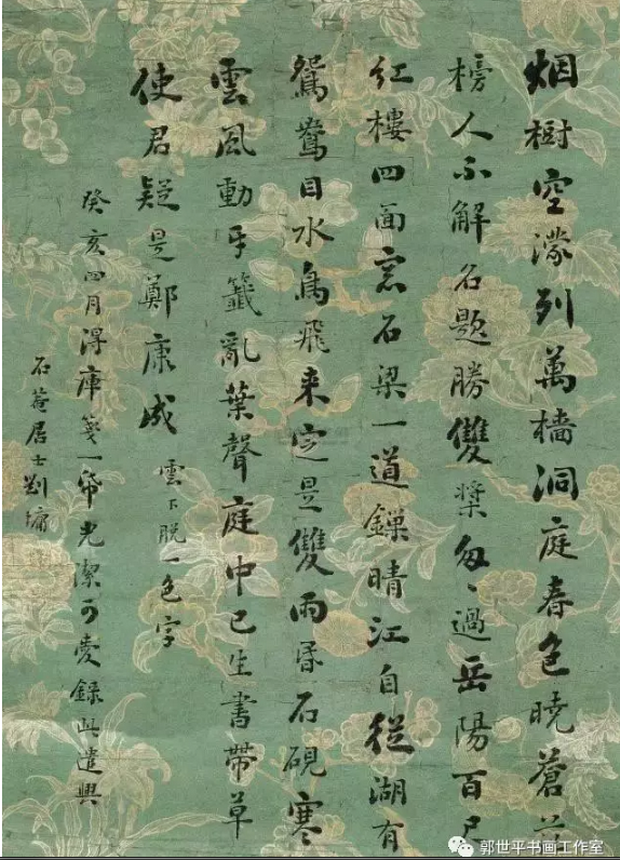 烟樹空濛列萬檣洞庭春色曉蒼
榜人不解名題勝雙槳匆〻過岳陽百尺
紅樓四面窓石梁一道鏁晴江自從湖有
鴛鴦目水鳥飛来定是雙雨昏石硯寒
雲風動牙籤亂葉聲庭中已生書帶草
使君疑是鄭康成 雲下脱一色字
癸亥四月得庫箋一帋光潔可愛錄此遣興
石菴居士劉墉
郭世平书画工作室